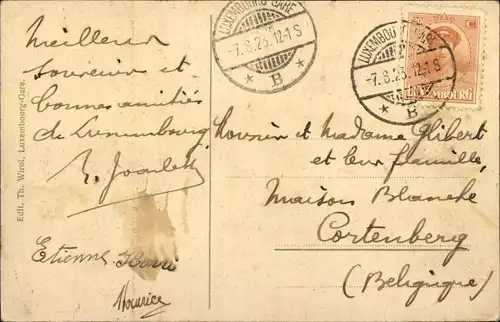 Meilleur
souvenir et
bonnes amitiés
de Luxembourg
Etienne Henri
Maurice
Edit. Th. Wirol, Luxembourg-Gare.
LUXEMBOURG GARE
-7.8.25. 12-1 S
* B *
LUXEMBOURG
-7.8.25. 12-1 S
* B
Monsieur et Madame Ghibert
et leur famille,
Maison Blanche
Cortenberg
(Belgique)